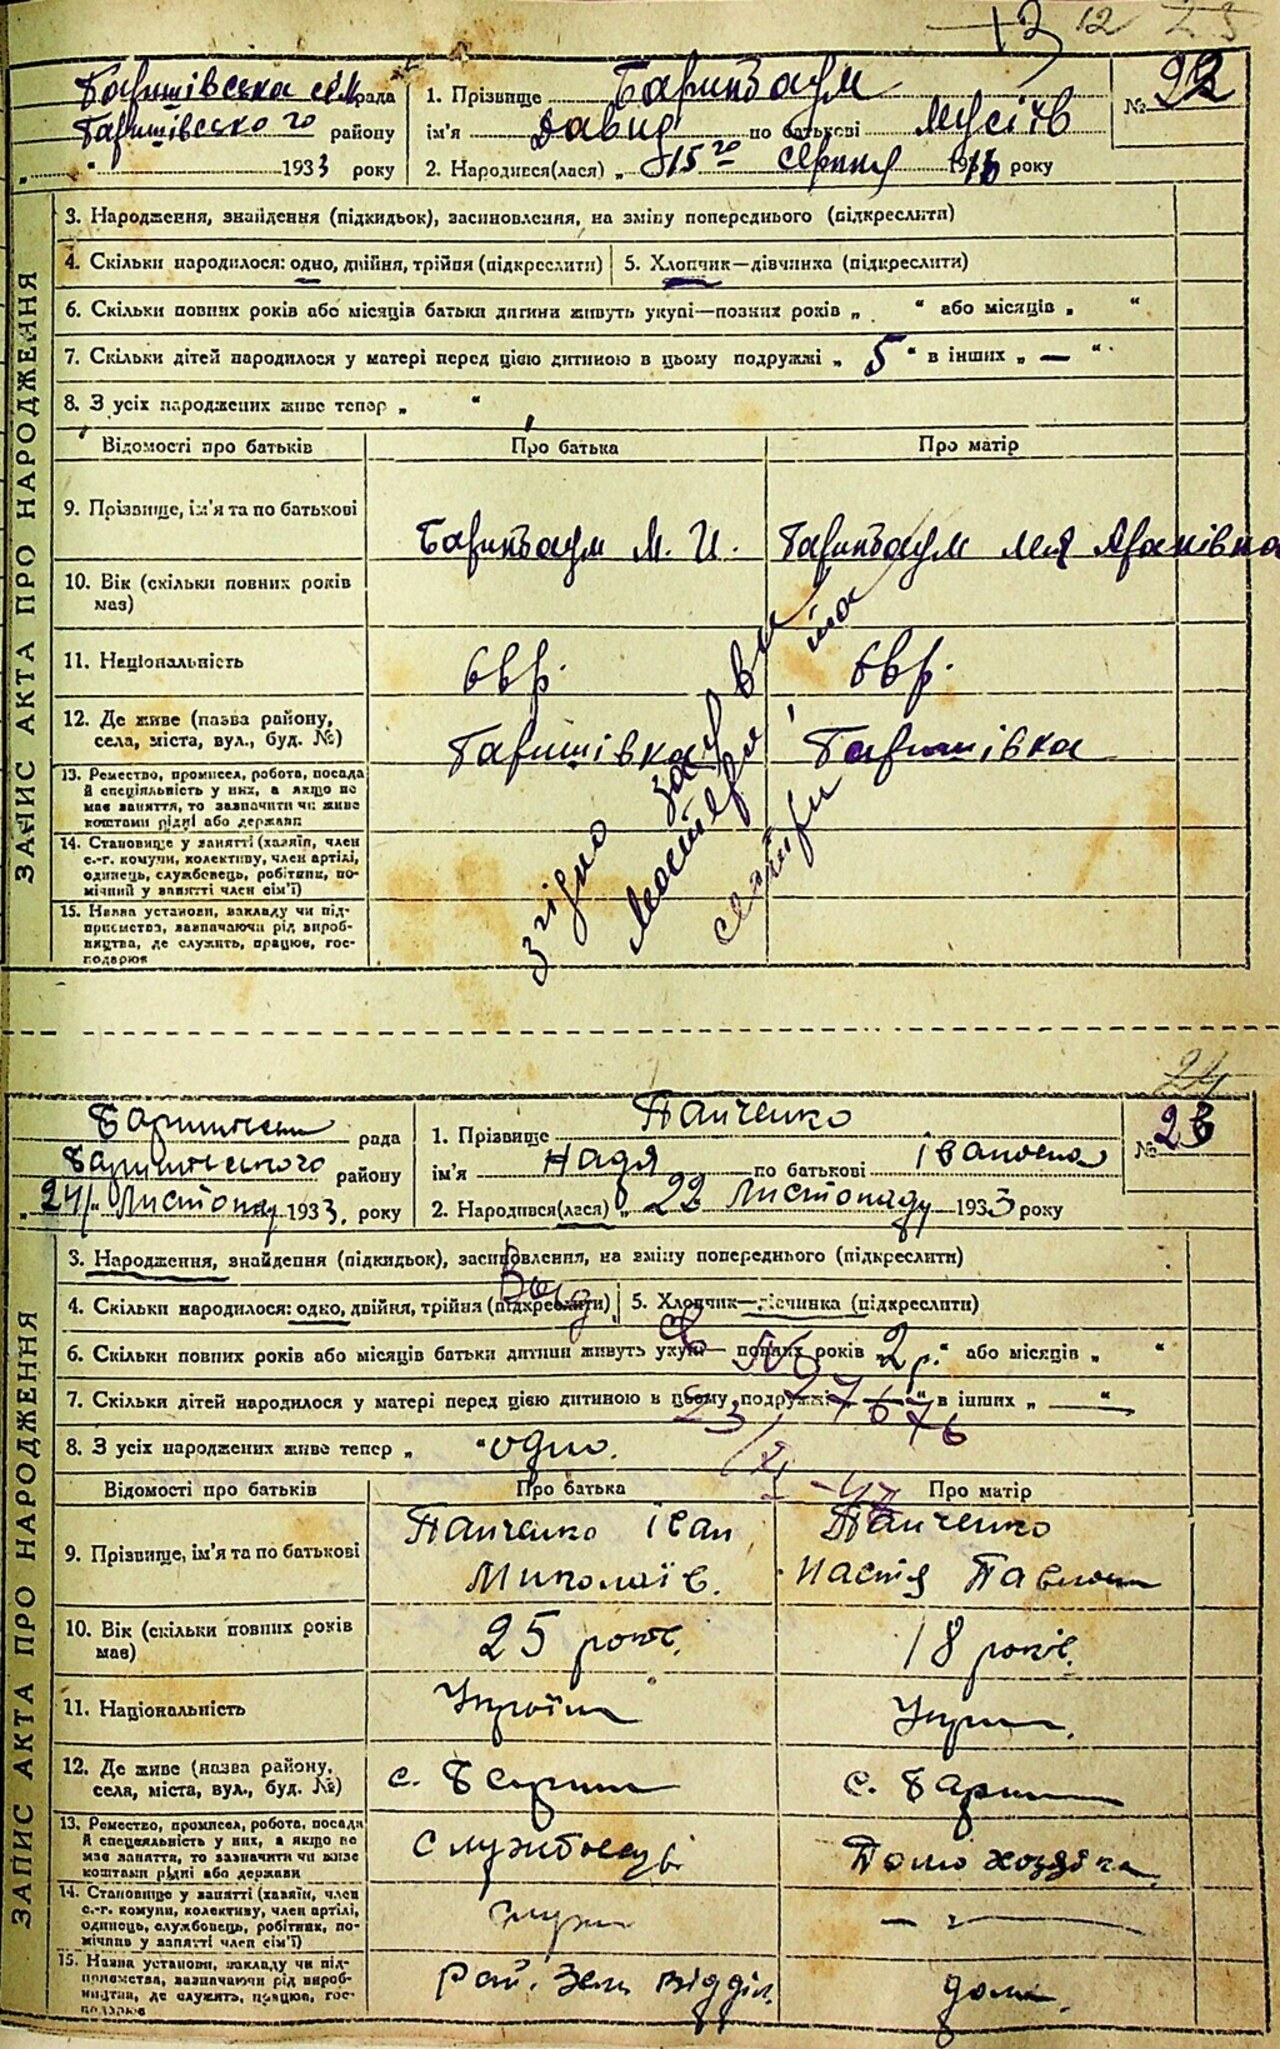 12
Баришівська сіл рада
Баришівського району
„ " 1933 року
1. Прізвище Баринбаум
ім'я Давид по батькові Мусіїв
2. Народився(лася) „ 15го серпня року
№ 22
ЗАПИС АКТА ПРО НАРОДЖЕННЯ
3. Народження, знайдення (підкидьок), засиновлення, на зміну попереднього (підкреслити)
4. Скільки народилося: одно, двійня, трійня (підкреслити) 5. Хлопчик—дівчинка (підкреслити)
6. Скільки повних років або місяців батьки дитини живуть укупі—повних років „ " або місяців „ "
7. Скільки дітей народилося у матері перед цією дитиною в цьому подружжі „ 5 " в інших „ — "
8. З усіх народжених живе тепер „ "
Відомості про батьків Про батька Про матір
9. Прізвище, ім'я та по батькові
Баринбаум М. И. Баринбаум Мея Аранівна
10. Вік (скільки повних років
має)
11. Національність євр. євр.
12. Де живе (назва району,
села, міста, вул., буд. №) Баришівка Баришівка
13. Ремество, промисел, робота, посада
й спеціяльність у них, а якщо не
має заняття, то зазначити чи живе
коштами рідні або держави
14. Становище у занятті (хазяїн, член
с.-г. комуни, колективу, член артілі,
одинець, службовець, робітник, по-
мічний у занятті член сім'ї)
15. Назва установи, закладу чи під-
приємства, зазначаючи рід вироб-
ництва, де служить, працює, гос-
подарює
згідно заяви
матері та
сестри
24
рада
Баришівського району
„ 24 " Листопаду 1933. року
1. Прізвище Панченко
ім'я Надя по батькові Івановна
2. Народився(лася) „ 22 Листопаду 1933 року
№ 23
ЗАПИС АКТА ПРО НАРОДЖЕННЯ
3. Народження, знайдення (підкидьок), засиновлення, на зміну попереднього (підкреслити)
4. Скільки народилося: одно, двійня, трійня (підкреслити) 5. Хлопчик—дівчинка (підкреслити)
6. Скільки повних років або місяців батьки дитини живуть укупі— повних років „ 2 р. " або місяців „ "
7. Скільки дітей народилося у матері перед цією дитиною в цьому подружжі " в інших „ — "
8. З усіх народжених живе тепер „ " одно.
Відомості про батьків Про батька Про матір
9. Прізвище, ім'я та по батькові
Панченко Іван
Миколаїв.
Панченко
Настя Павловн
10. Вік (скільки повних років
має) 25 років. 18 років.
11. Національність Україн Украін.
12. Де живе (назва району,
села, міста, вул., буд. №) с. Бариш с. Бариш
13. Ремество, промисел, робота, посада
й спеціяльність у них, а якщо не
має заняття, то зазначити чи живе
коштами рідні або держави
Службовець Домохозяйка
14. Становище у занятті (хазяїн, член
с.-г. комуни, колективу, член артілі,
одинець, службовець, робітник, по-
мічник у занятті член сім'ї)
15. Назва установи, закладу чи під-
приємства, зазначаючи рід вироб-
ництва, де служить, працює, гос-
подарює
Рай. Зем. Відділ. дома.